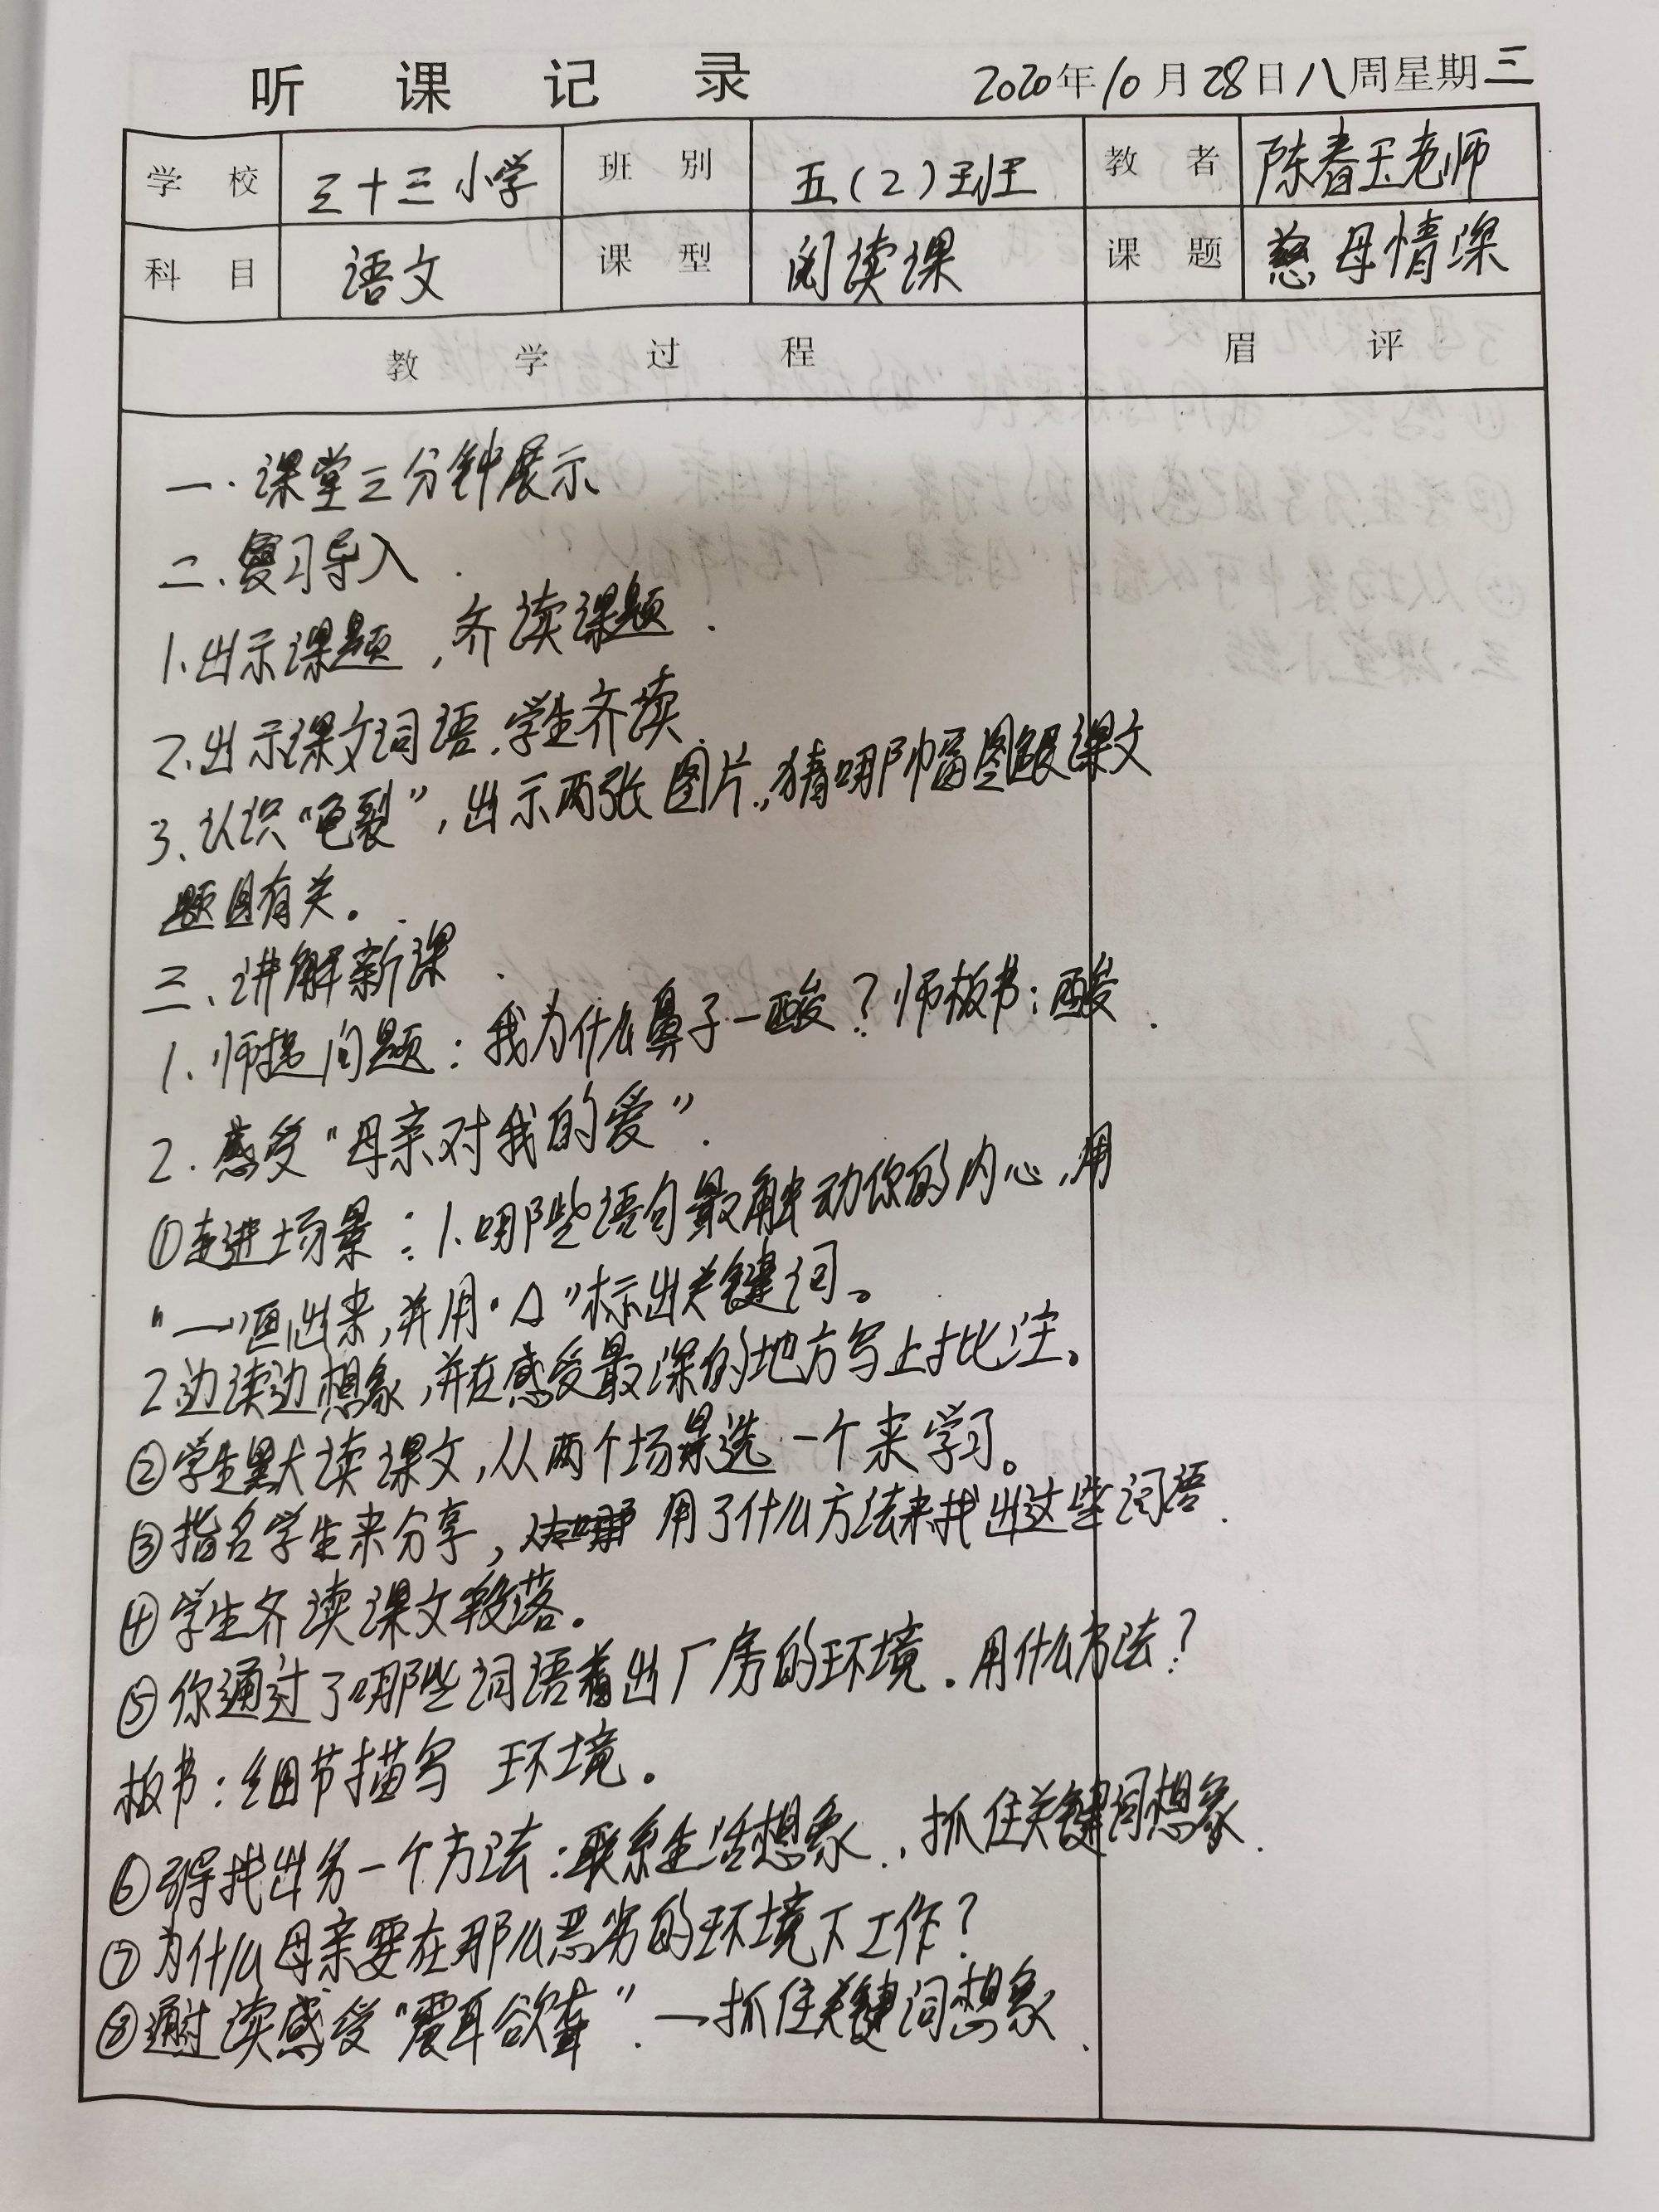 听课记录 2020年10月28日八周星期三
学校 三十三小学 班别 五(2)班 教者 陈春玉老师
科目 语文 课型 阅读课 课题 慈母情深
教学过程 眉评
一.课堂三分钟展示
二、复习导入.
1.出示课题,齐读课题.
2.出示课文词语.学生齐读.
3、认识“龟裂”,出示两张图片,猜哪幅图跟课文
题目有关。
三、讲解新课.
1.师提问题:我为什么鼻子一酸?师板书:酸.
2.感受“母亲对我的爱”.
①走进场景:1.哪些语句最触动你的内心,用
“—”画出来,并用“△”标出关键词。
2边读边想象,并在感受最深的地方写上批注。
②学生默读课文,从两个场景选一个来学习。
③指名学生来分享,用了什么方法来找出这些词语.
④学生齐读课文段落。
⑤你通过了哪些词语看出厂房的环境.用什么方法?
板书:细节描写 环境。
⑥得找出另一个方法:联系生活想象.,抓住关键词想象.
⑦为什么母亲要在那么恶劣的环境下工作?
⑧通过读感受“震耳欲聋”.—抓住关键词想象.